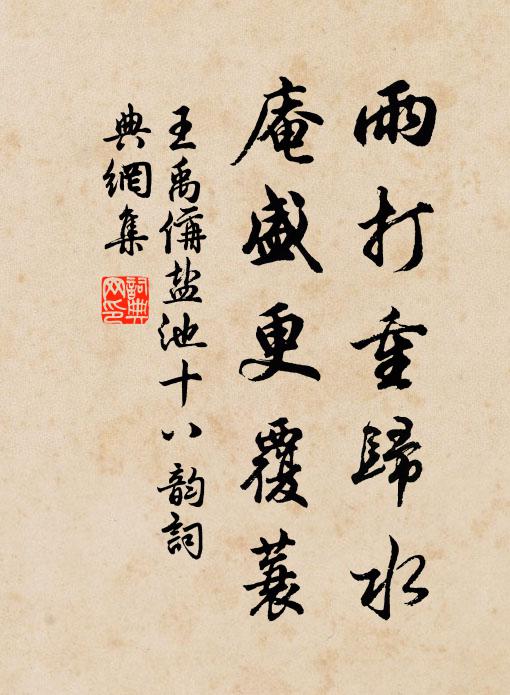 雨打重歸水
庵盛更覆蓑
王禹偁盐池十八韵詞
典網集
詞典網印